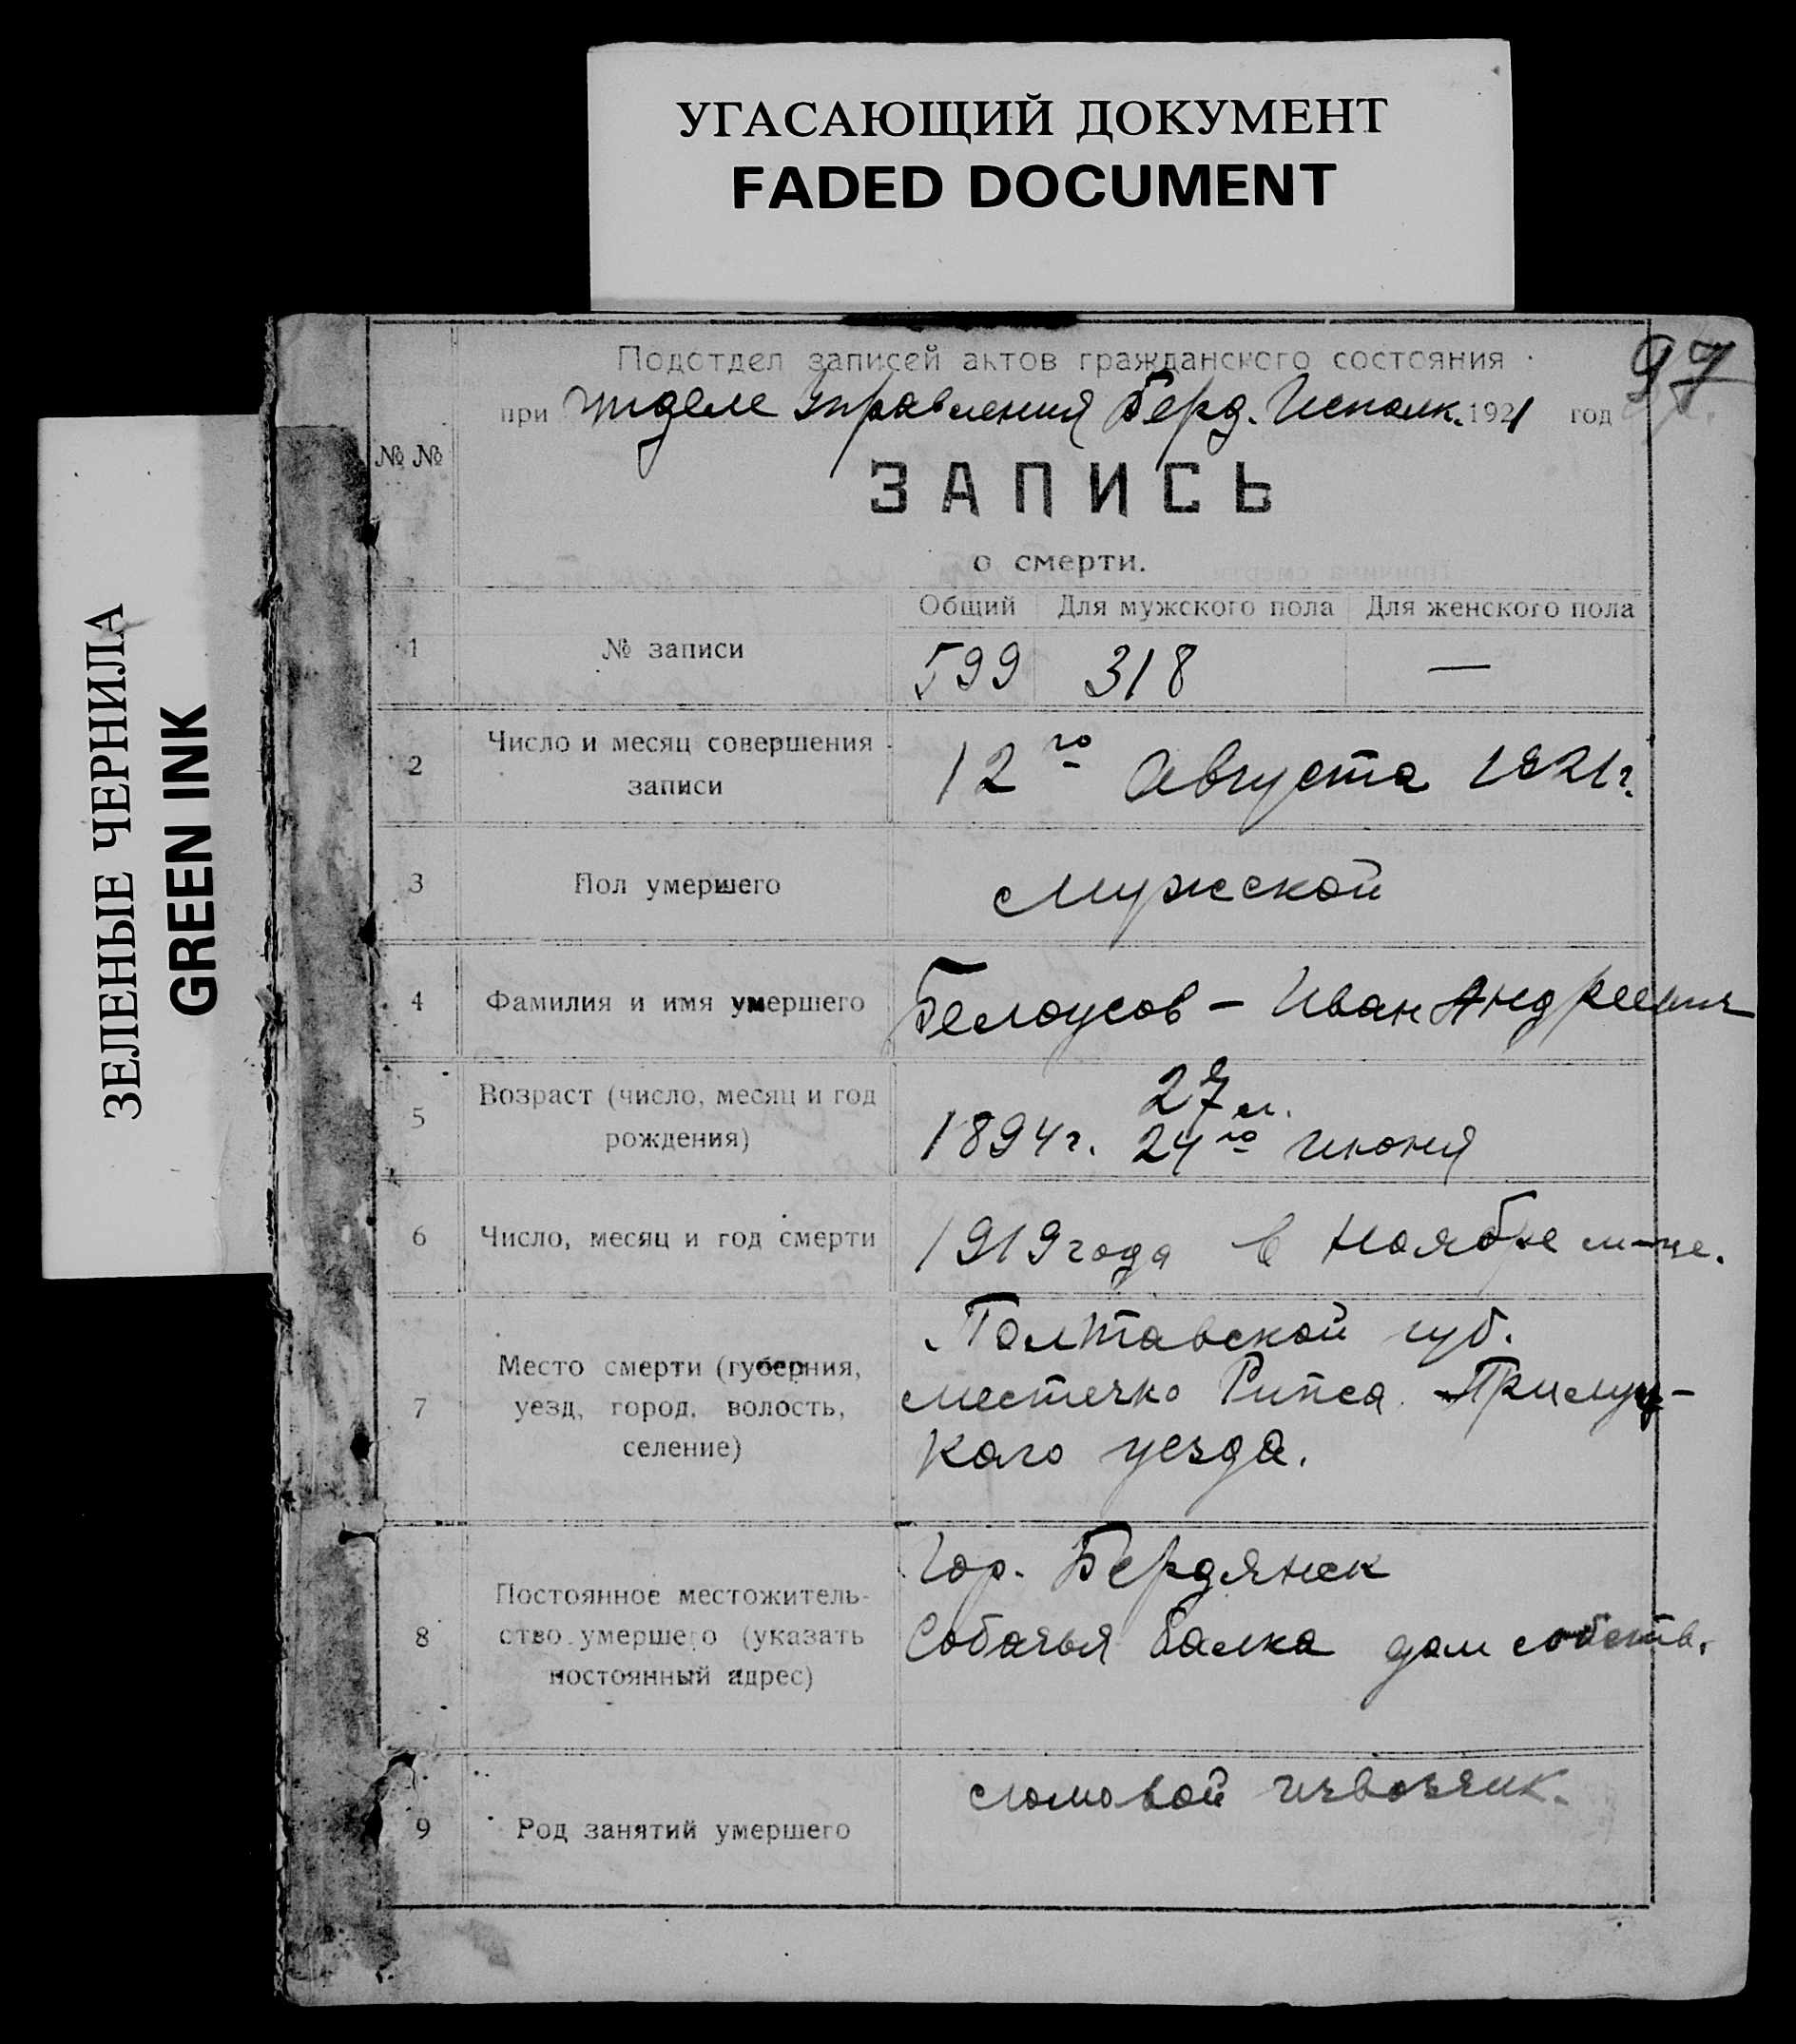 УГАСАЮЩИЙ ДОКУМЕНТ
FADED DOCUMENT
ЗЕЛЕНЫЕ ЧЕРНИЛА
GREEN INK
97
Подотдел записей актов гражданского состояния
при Отделе Управления Берд. Исполк. 1921 год
№ №
ЗАПИСЬ
о смерти.
Общий Для мужского пола Для женского пола
1 № записи 599 318 —
2 Число и месяц совершения
записи
12го Августа 1921г.
3 Пол умершего Мужской
4 Фамилия и имя умершего Белоусов - Иван Андреевич
5 Возраст (число, месяц и год
рождения)
27 л.
1894г. 24го Июня
6 Число, месяц и год смерти 1919 года в Ноябре м-це.
7 Место смерти (губерния,
уезд, город, волость,
селение)
Полтавской губ.
местечко Рипса Прилуц-
кого уезда.
8 Постоянное местожитель-
ство умершего (указать
постоянный адрес)
Гор. Бердянск
Собачья балка дом собств.
9 Род занятий умершего
ломовой извозчик.